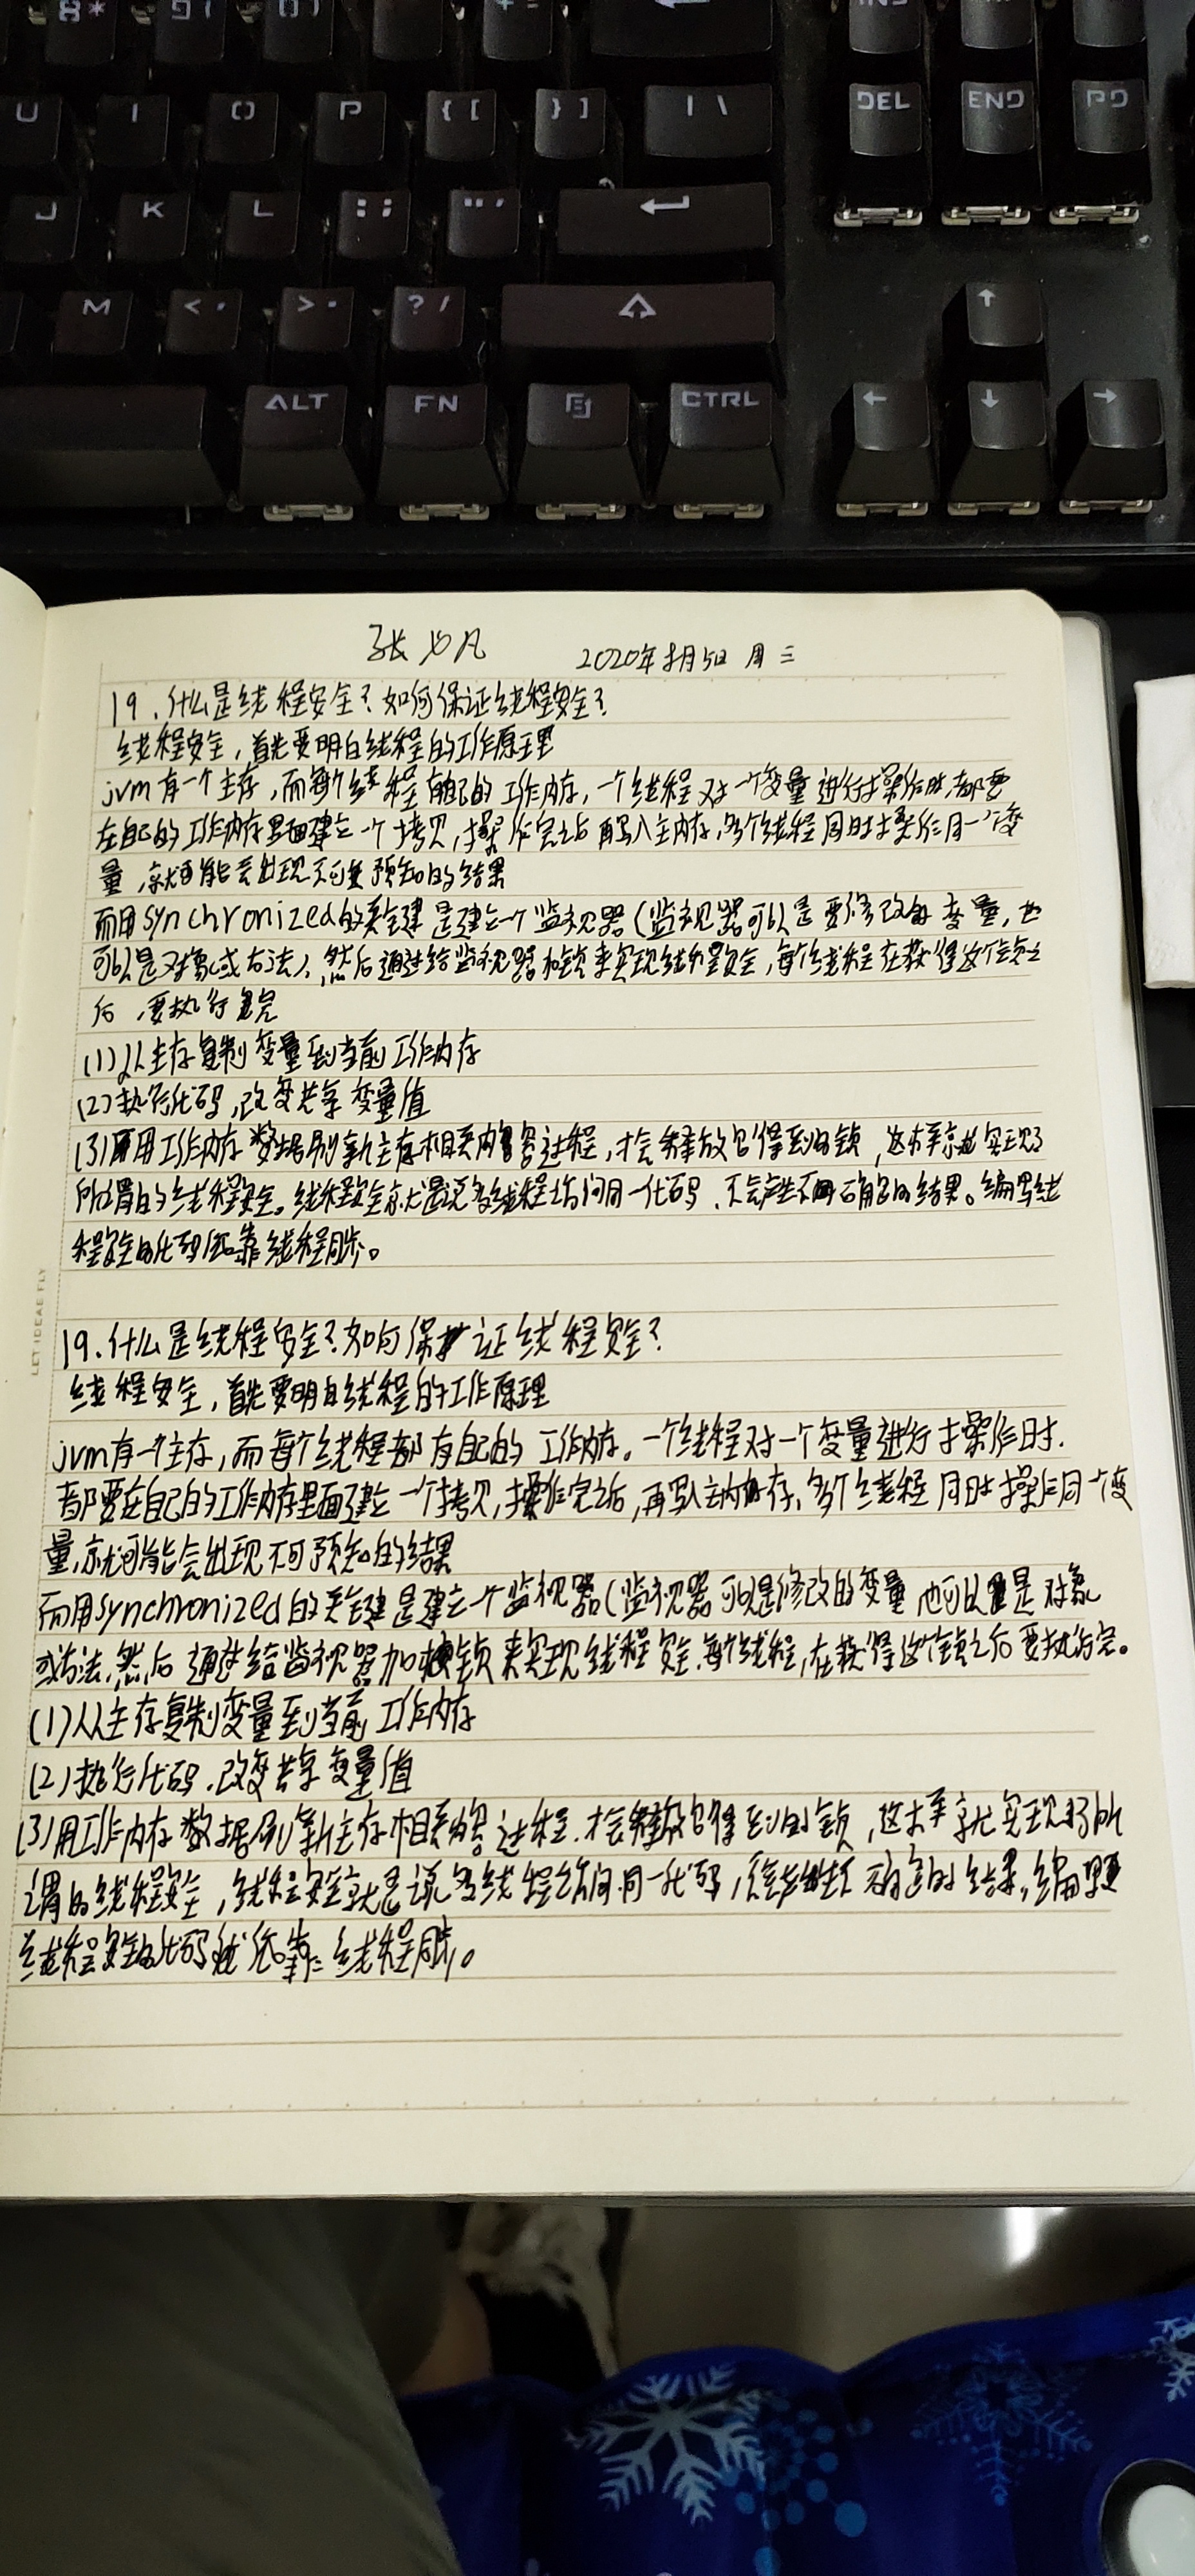 8* 9( 0) +=
INS
U I O P {[ }] | \ DEL END PD
J K L : ; " '
M < , > . ? /
ALT FN CTRL
张 凡 2020年8月5日 周三
19.什么是线程安全?如何保证线程安全?
线程安全,首先要明白线程的工作原理
jvm有一个主存,而每个线程有自己的工作内存,一个线程对一个变量进行操作时,都要
在自己的工作内存里面建立一个拷贝,操作完之后再写入主内存,多个线程同时操作同一个变
量,就可能会出现不可预知的结果
而用synchronized的关键是建立一个监视器(监视器可以是要修改的变量,也
可以是对象或方法),然后通过给监视器加锁来实现线程安全,每个线程在获得这个锁之
后,要执行完
(1)从主存复制变量到当前工作内存
(2)执行代码,改变共享变量值
(3)用工作内存数据刷新主存相关内容过程,才会释放它得到的锁,这样就实现了
所谓的线程安全。线程安全就是说多线程访问同一代码,不会产生不确定的结果。编写线
程安全的代码依靠线程同步。
LET IDEAS FLY
19.什么是线程安全?如何保证线程安全?
线程安全,首先要明白线程的工作原理
jvm有一个主存,而每个线程都有自己的工作内存。一个线程对一个变量进行操作时.
都要在自己的工作内存里面建立一个拷贝,操作完之后,再写入主内存,多个线程同时操作同一个变
量,就可能会出现不可预知的结果
而用synchronized的关键是建立一个监视器(监视器可以是修改的变量也可以是对象
或方法,然后通过给监视器加锁来实现线程安全,每个线程,在获得这个锁之后要执行完。
(1)从主存复制变量到当前工作内存
(2)执行代码.改变共享变量值
(3)用工作内存数据刷新主存相关内容过程.才会释放它得到的锁,这样就实现了所
谓的线程安全,线程安全就是说多线程访问同一代码,不确定的结果,编写
线程安全的代码依靠线程同步。